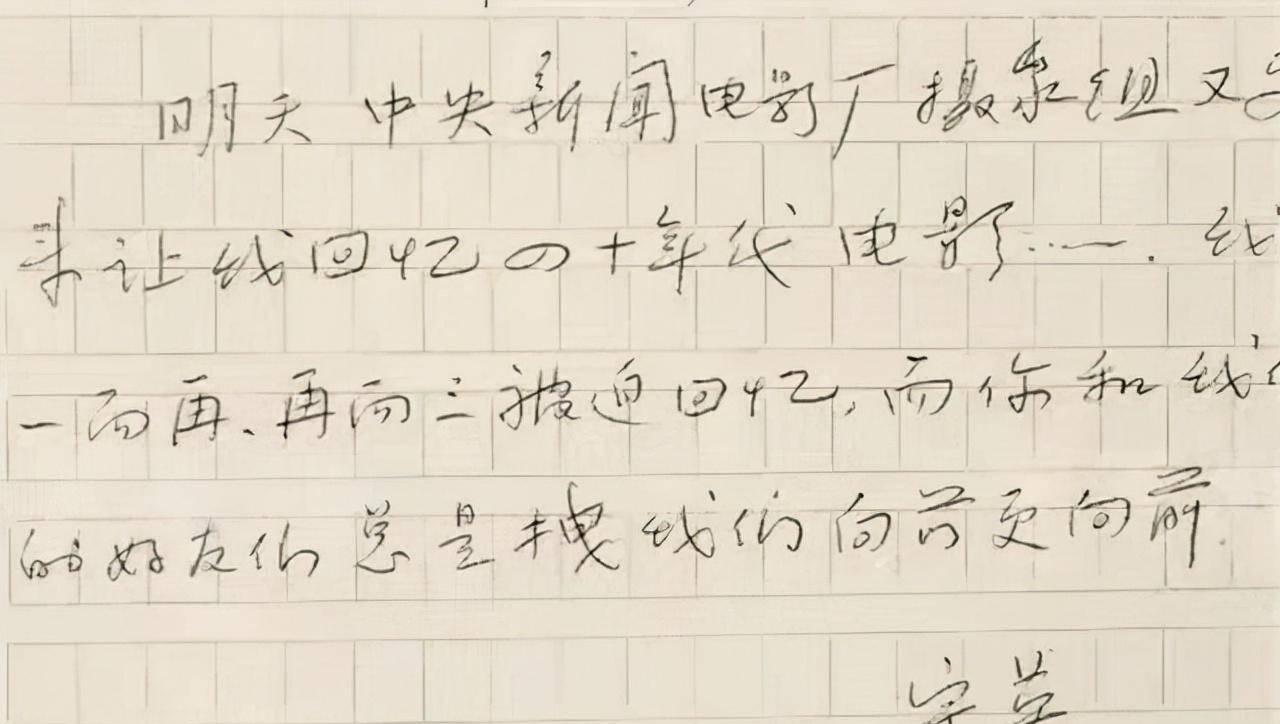 明天中央新闻电影厂摄象组又要
来让我回忆四十年代电影……. 我
一而再、再而三被迫回忆,而你和我们
的好友们总是拽我们向前更向前.